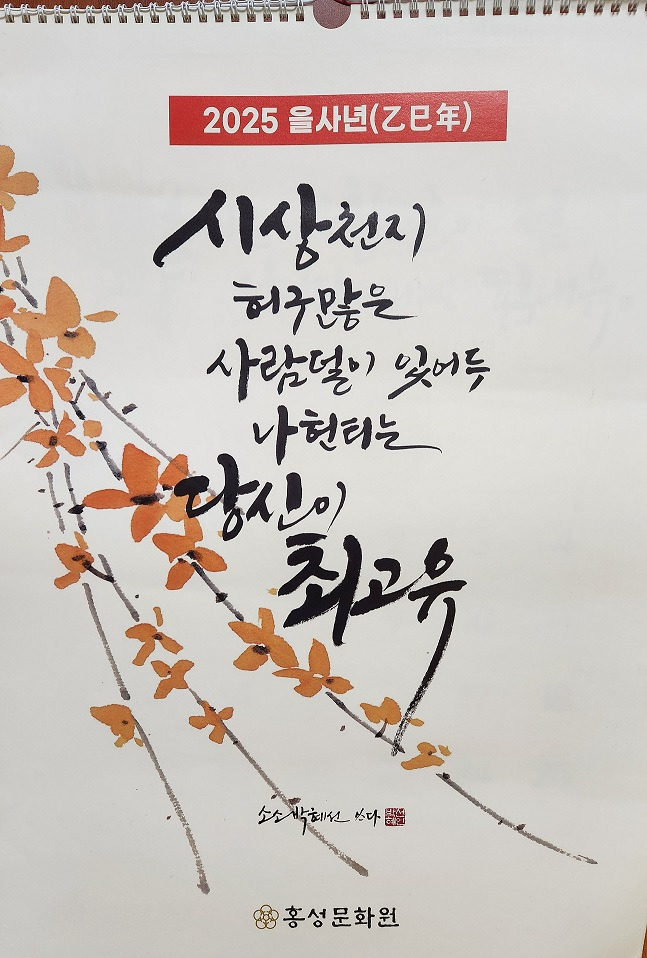 2025 을사년(乙巳年)
시상천지
허구많은
사람덜이 잊어두
나헌티는
당신이
최고유
소소 박혜선 쓰다
홍성문화원